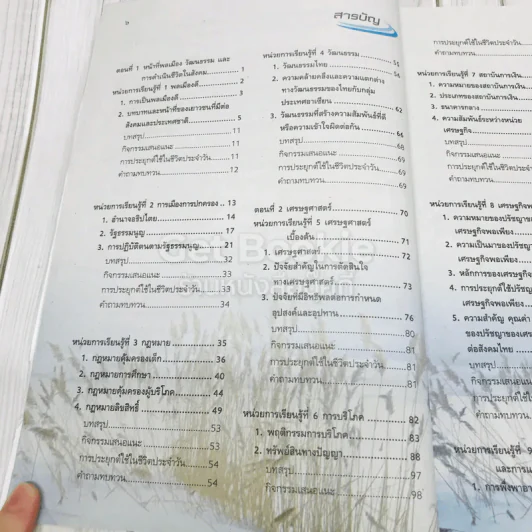 ๖
สารบัญ
ตอนที่ 1 หน้าที่พลเมือง วัฒนธรรม และ
การดำเนินชีวิตในสังคม ... 1
หน่วยการเรียนรู้ที่ 1 พลเมืองดี ... 2
1. การเป็นพลเมืองดี ... 3
2. บทบาทและหน้าที่ของเยาวชนที่มีต่อ
สังคมและประเทศชาติ ... 5
บทสรุป ... 11
กิจกรรมเสนอแนะ ... 11
การประยุกต์ใช้ในชีวิตประจำวัน ... 11
คำถามทบทวน ... 12
หน่วยการเรียนรู้ที่ 2 การเมืองการปกครอง .. 13
1. อำนาจอธิปไตย ... 14
2. รัฐธรรมนูญ ... 17
3. การปฏิบัติตนตามรัฐธรรมนูญ ... 21
บทสรุป ... 32
กิจกรรมเสนอแนะ ... 33
การประยุกต์ใช้ในชีวิตประจำวัน ... 33
คำถามทบทวน ... 34
หน่วยการเรียนรู้ที่ 3 กฎหมาย ... 35
1. กฎหมายคุ้มครองเด็ก ... 36
2. กฎหมายการศึกษา ... 40
3. กฎหมายคุ้มครองผู้บริโภค ... 44
4. กฎหมายลิขสิทธิ์ ... 49
บทสรุป ... 53
กิจกรรมเสนอแนะ ... 53
การประยุกต์ใช้ในชีวิตประจำวัน ... 54
คำถามทบทวน ... 54
หน่วยการเรียนรู้ที่ 4 วัฒนธรรม ... 55
1. วัฒนธรรมไทย ... 56
2. ความคล้ายคลึงและความแตกต่าง
ทางวัฒนธรรมของไทยกับกลุ่ม
ประเทศอาเซียน ... 62
3. วัฒนธรรมที่สร้างความสัมพันธ์ที่ดี
หรือความเข้าใจผิดต่อกัน ... 66
บทสรุป ... 68
กิจกรรมเสนอแนะ ... 69
การประยุกต์ใช้ในชีวิตประจำวัน ... 69
คำถามทบทวน ... 69
ตอนที่ 2 เศรษฐศาสตร์ ... 70
หน่วยการเรียนรู้ที่ 5 เศรษฐศาสตร์
เบื้องต้น ... 71
1. เศรษฐศาสตร์ ... 72
2. ปัจจัยสำคัญในการตัดสินใจ
ทางเศรษฐศาสตร์ ... 73
3. ปัจจัยที่มีอิทธิพลต่อการกำหนด
อุปสงค์และอุปทาน ... 76
บทสรุป ... 80
กิจกรรมเสนอแนะ ... 81
การประยุกต์ใช้ในชีวิตประจำวัน ... 81
คำถามทบทวน ... 81
หน่วยการเรียนรู้ที่ 6 การบริโภค ... 82
1. พฤติกรรมการบริโภค ... 83
2. ทรัพย์สินทางปัญญา ... 88
บทสรุป ... 97
กิจกรรมเสนอแนะ ... 98
การประยุกต์ใช้ในชีวิตประจำวัน
คำถามทบทวน
หน่วยการเรียนรู้ที่ 7 สถาบันการเงิน
1. ความหมายของสถาบันการเงิน
2. ประเภทของสถาบันการเงิน
3. ธนาคารกลาง
4. ความสัมพันธ์ระหว่างหน่วย
เศรษฐกิจ
บทสรุป
กิจกรรมเสนอแนะ
การประยุกต์ใช้ในชีวิต
คำถามทบทวน
หน่วยการเรียนรู้ที่ 8 เศรษฐกิจพอ
1. ความหมายของปรัชญา
เศรษฐกิจพอเพียง
2. ความเป็นมาของปรัช
เศรษฐกิจพอเพียง
3. หลักการของเศรษฐกิ
4. การประยุกต์ใช้ปรัช
เศรษฐกิจพอเพีย
5. ความสำคัญ คุณค่า
ของปรัชญาของเศร
ต่อสังคมไทย
บทสรุป
กิจกรรมเสนอแนะ
การประยุกต์ใช้ใ
คำถามทบทวน
หน่วยการเรียนรู้ที่ 9
และการแ
1. การพึ่งพาอา
Get Bookie